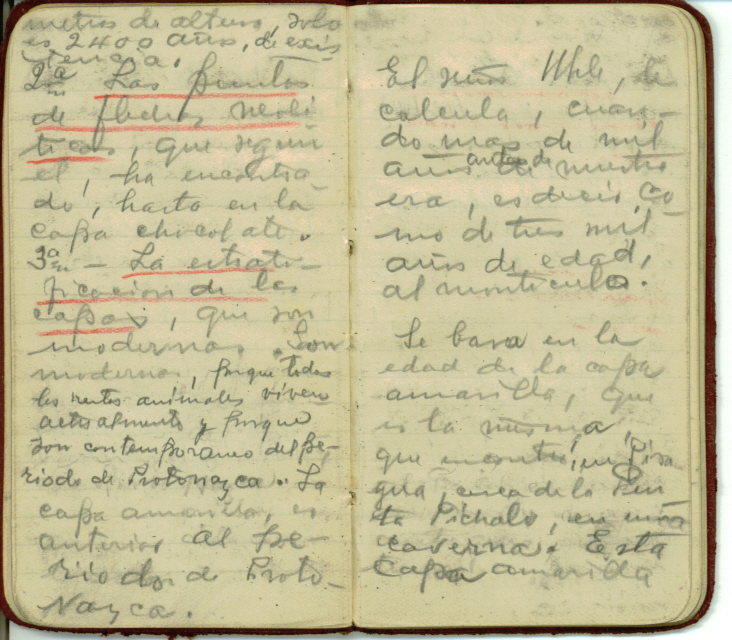 metros de altura, solo
es 2400 años, de exis
tencia.
2ª — Las puntas
de flechas neolí
ticas, que según
el, ha encontra-
do, hasta en la
capa chocolate.
3ª — La estrati-
ficacion de las
capas, que son
modernas. Son
modernas, porque todos
los restos animales viven
actualmente y porque
son contemporaneo del pe-
riodo de Protonazca. La
capa amarilla, es
anterior al pe-
riodo de Proto-
Nazca.
El señor Uhle, le
calcula, cuan-
do mas de mil
años antes de nuestra
era, es decir, co-
mo de tres mil
años de edad,
al montículo.
Se basa en la
edad de la capa
amarilla, que
es la misma,
que encontré, en Pisa
gua, cerca de la Pun
ta Pichalo, en una
caverna. Esta
capa amarilla